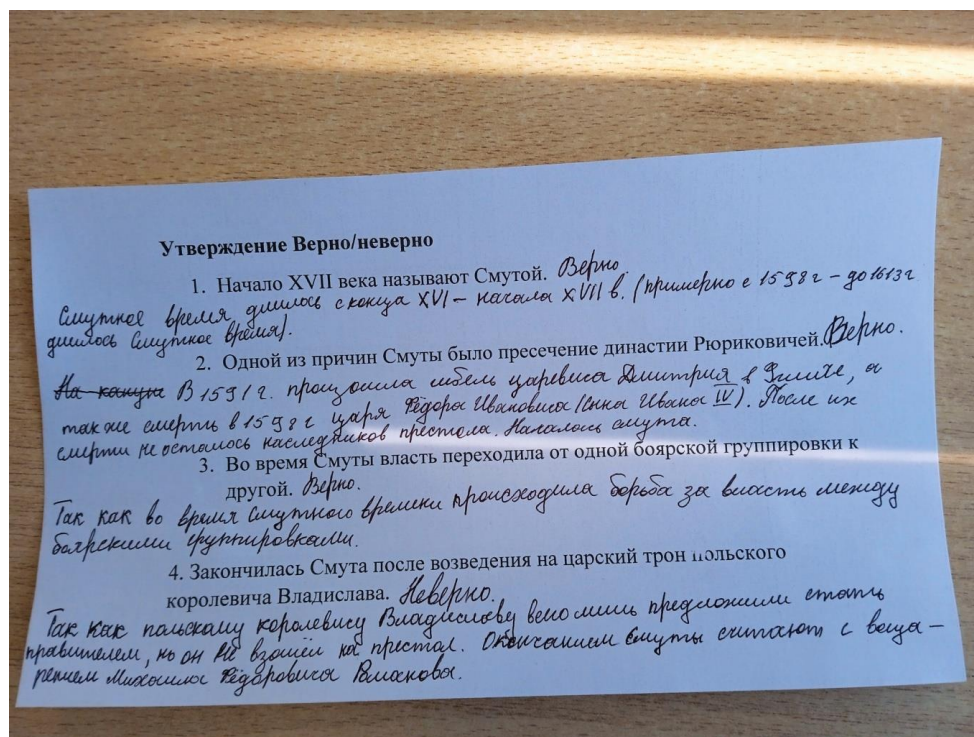 Утверждение Верно/неверно
1. Начало XVII века называют Смутой. Верно.
Смутное время длилось с конца XVI – начала XVII в. (примерно с 1598 г – до 1613 г
длилось Смутное время).
2. Одной из причин Смуты было пресечение династии Рюриковичей. Верно.
На кануне В 1591 г. произошла гибель царевича Дмитрия в Угличе, а
также смерть в 1598 г царя Фёдора Ивановича (сына Ивана IV). После их
смерти не осталось наследников престола. Началось смута.
3. Во время Смуты власть переходила от одной боярской группировки к
другой. Верно.
Так как во время смутного времени происходила борьба за власть между
боярскими группировками.
4. Закончилась Смута после возведения на царский трон польского
королевича Владислава. Неверно.
Так как польскому королевичу Владиславу лишь предложили стать
правителем, но он не взошёл на престол. Окончанием Смуты считают с воца–
рением Михаила Фёдоровича Романова.